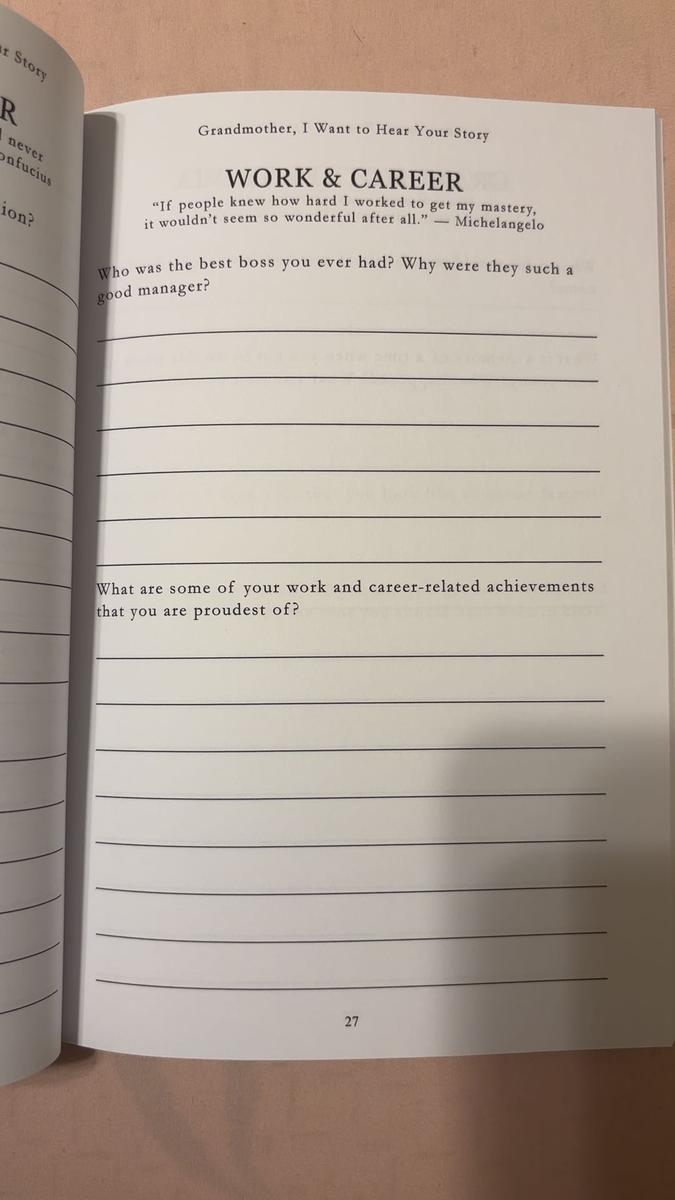 r Story
R
never
onfucius
ion?
Grandmother, I Want to Hear Your Story
WORK & CAREER
“If people knew how hard I worked to get my mastery,
it wouldn’t seem so wonderful after all.” — Michelangelo
Who was the best boss you ever had? Why were they such a
good manager?
What are some of your work and career-related achievements
that you are proudest of?
27